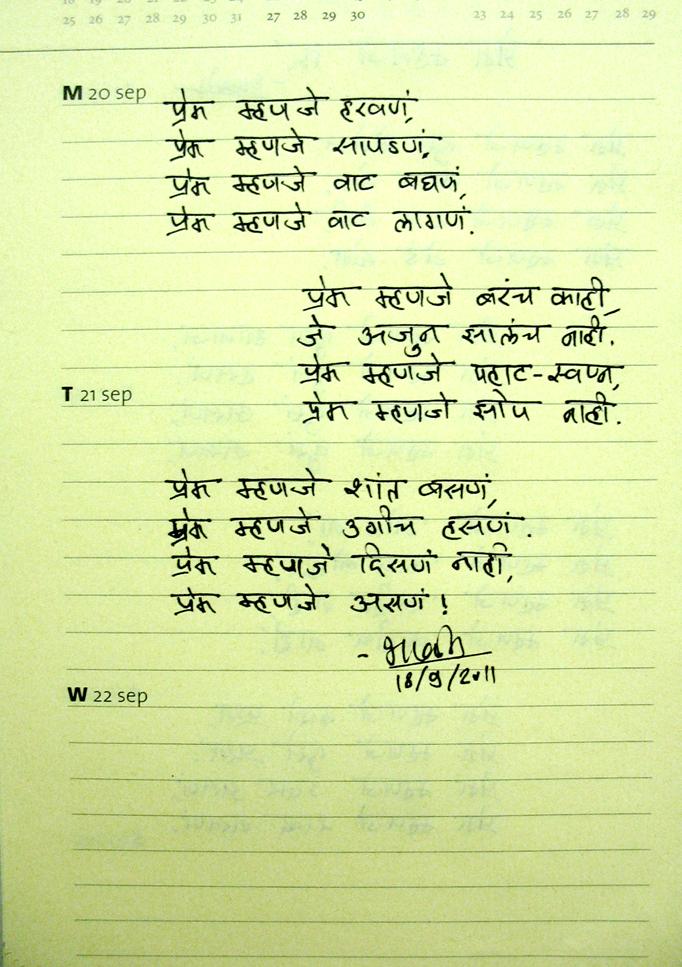 25 26 27 28 29 30 31 27 28 29 30 23 24 25 26 27 28 29
M 20 sep
प्रेम म्हणजे हरवणं,
प्रेम म्हणजे सापडणं,
प्रेम म्हणजे वाट बघणं,
प्रेम म्हणजे वाट लागणं.
प्रेम म्हणजे बरंच काही,
जे अजुन झालंच नाही.
प्रेम म्हणजे पहाट-स्वप्न,
T 21 sep
प्रेम म्हणजे झोप नाही.
प्रेम म्हणजे शांत बसणं,
प्रेम म्हणजे उगीच हसणं.
प्रेम म्हणजे दिसणं नाही,
प्रेम म्हणजे असणं!
18/9/2011
W 22 sep